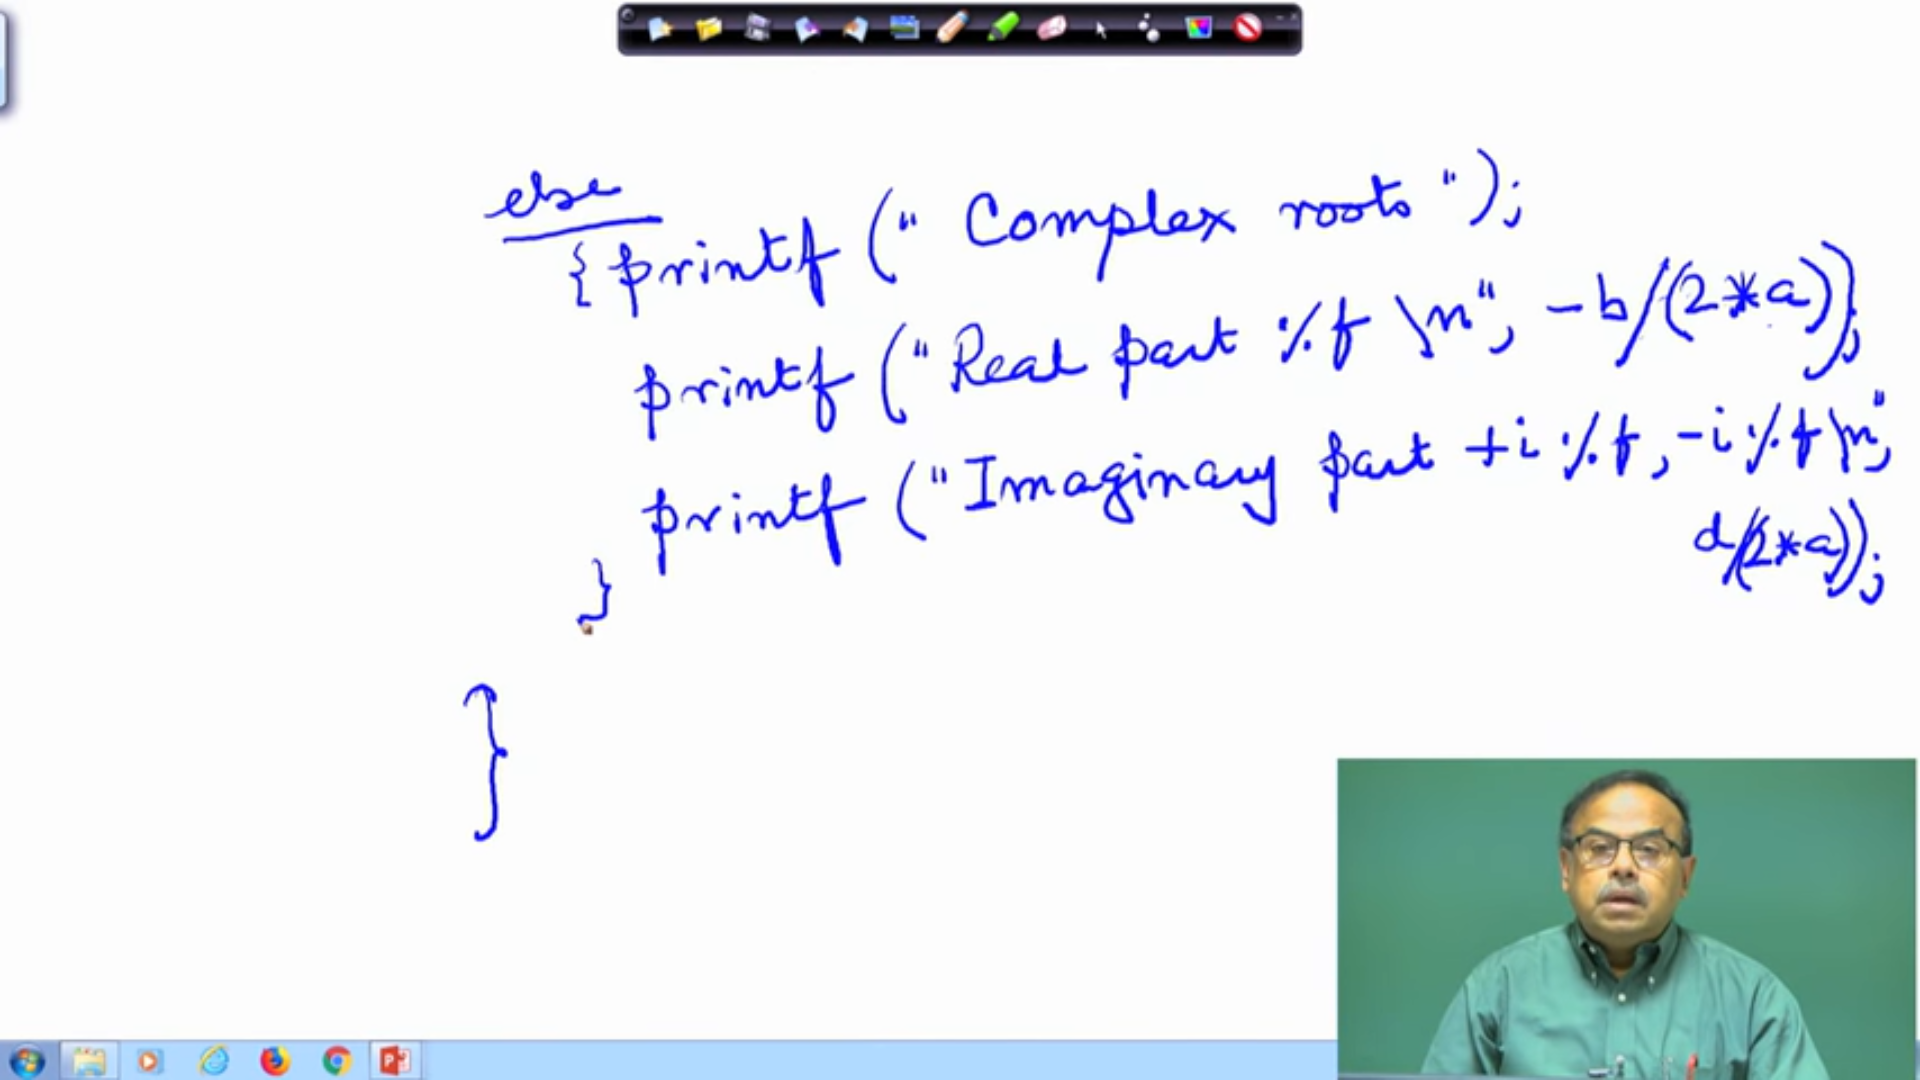 else
{ printf (" Complex roots ");
printf ("Real part %f \n", -b/(2*a));
printf ("Imaginary part +i %f, -i %f \n",
d/(2*a));
}
}